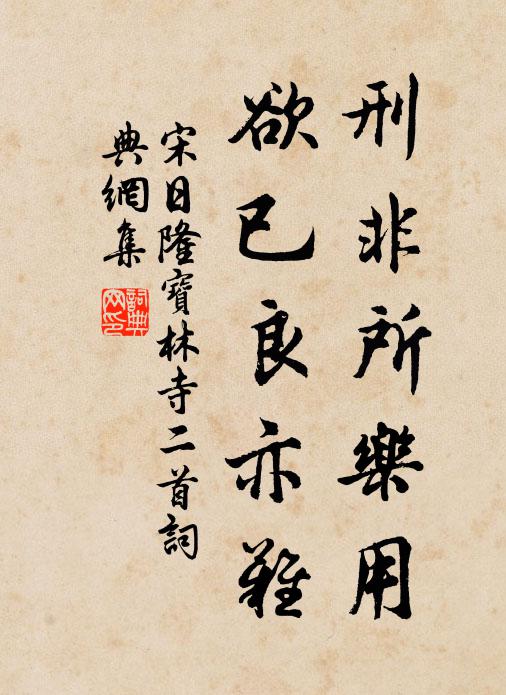 刑非所樂用
欲已良亦難
宋日隆寶林寺二首詞
典網集
詞典
网印